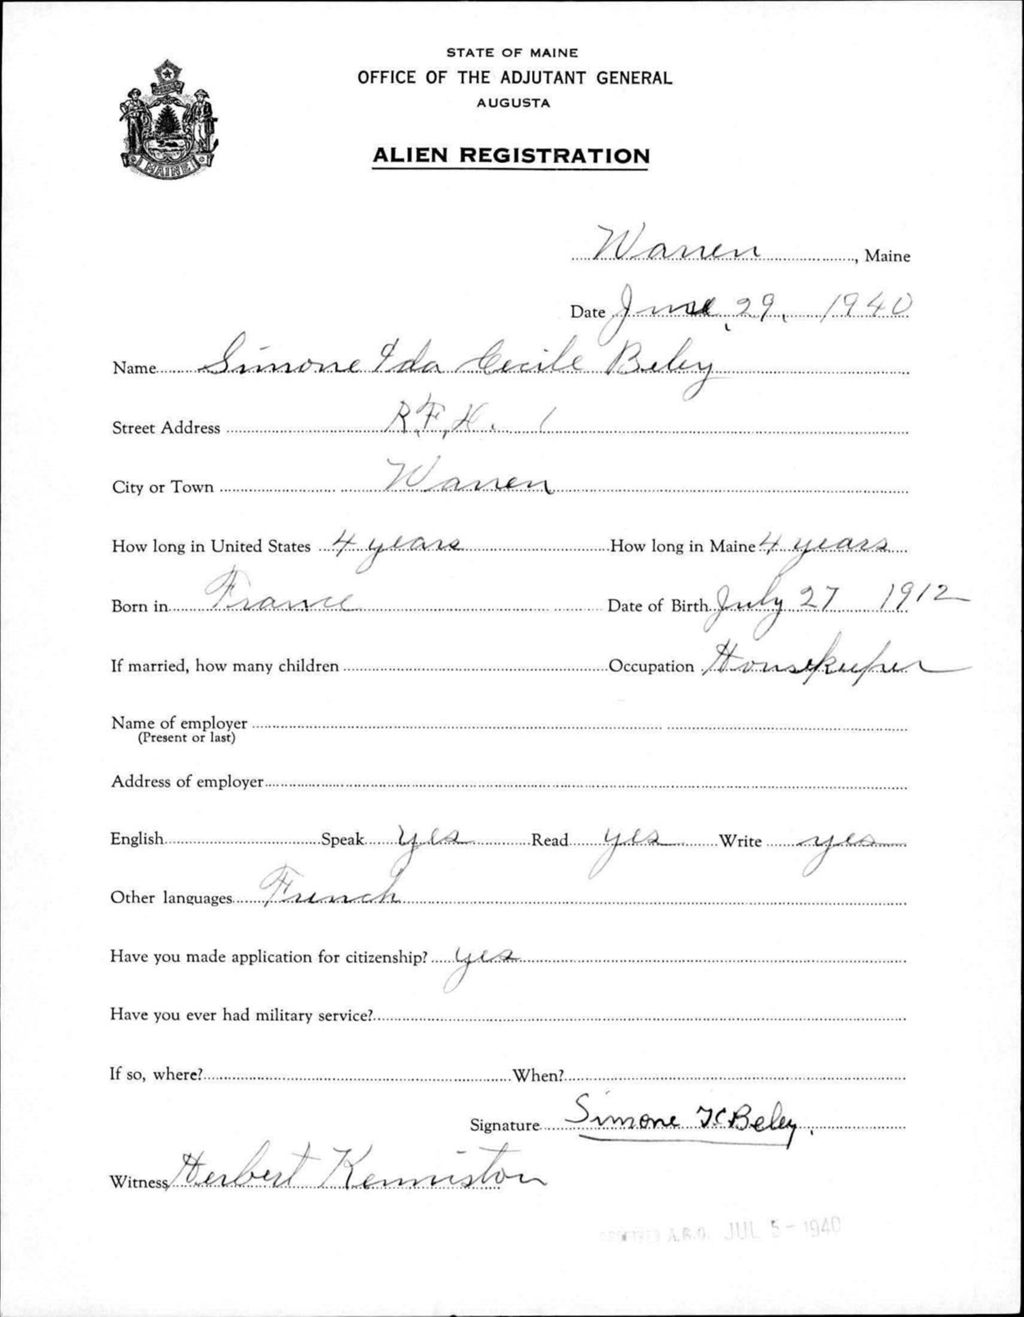 STATE OF MAINE
OFFICE OF THE ADJUTANT GENERAL
AUGUSTA
ALIEN REGISTRATION
MAINE
Warren, Maine
Date June 29, 1940
Name Simone Ida Cecile Beley
Street Address R.F.H. 1
City or Town Warren
How long in United States 4 years How long in Maine 4 years
Born in France Date of Birth July 27 1912
If married, how many children Occupation Housekeeper
Name of employer
(Present or last)
Address of employer
English Speak yes Read yes Write yes
Other languages French
Have you made application for citizenship? yes
Have you ever had military service?
If so, where? When?
Signature Simone I C Beley.
Witness Herbert Kenniston
A.G.O. JUL 5 - 1940